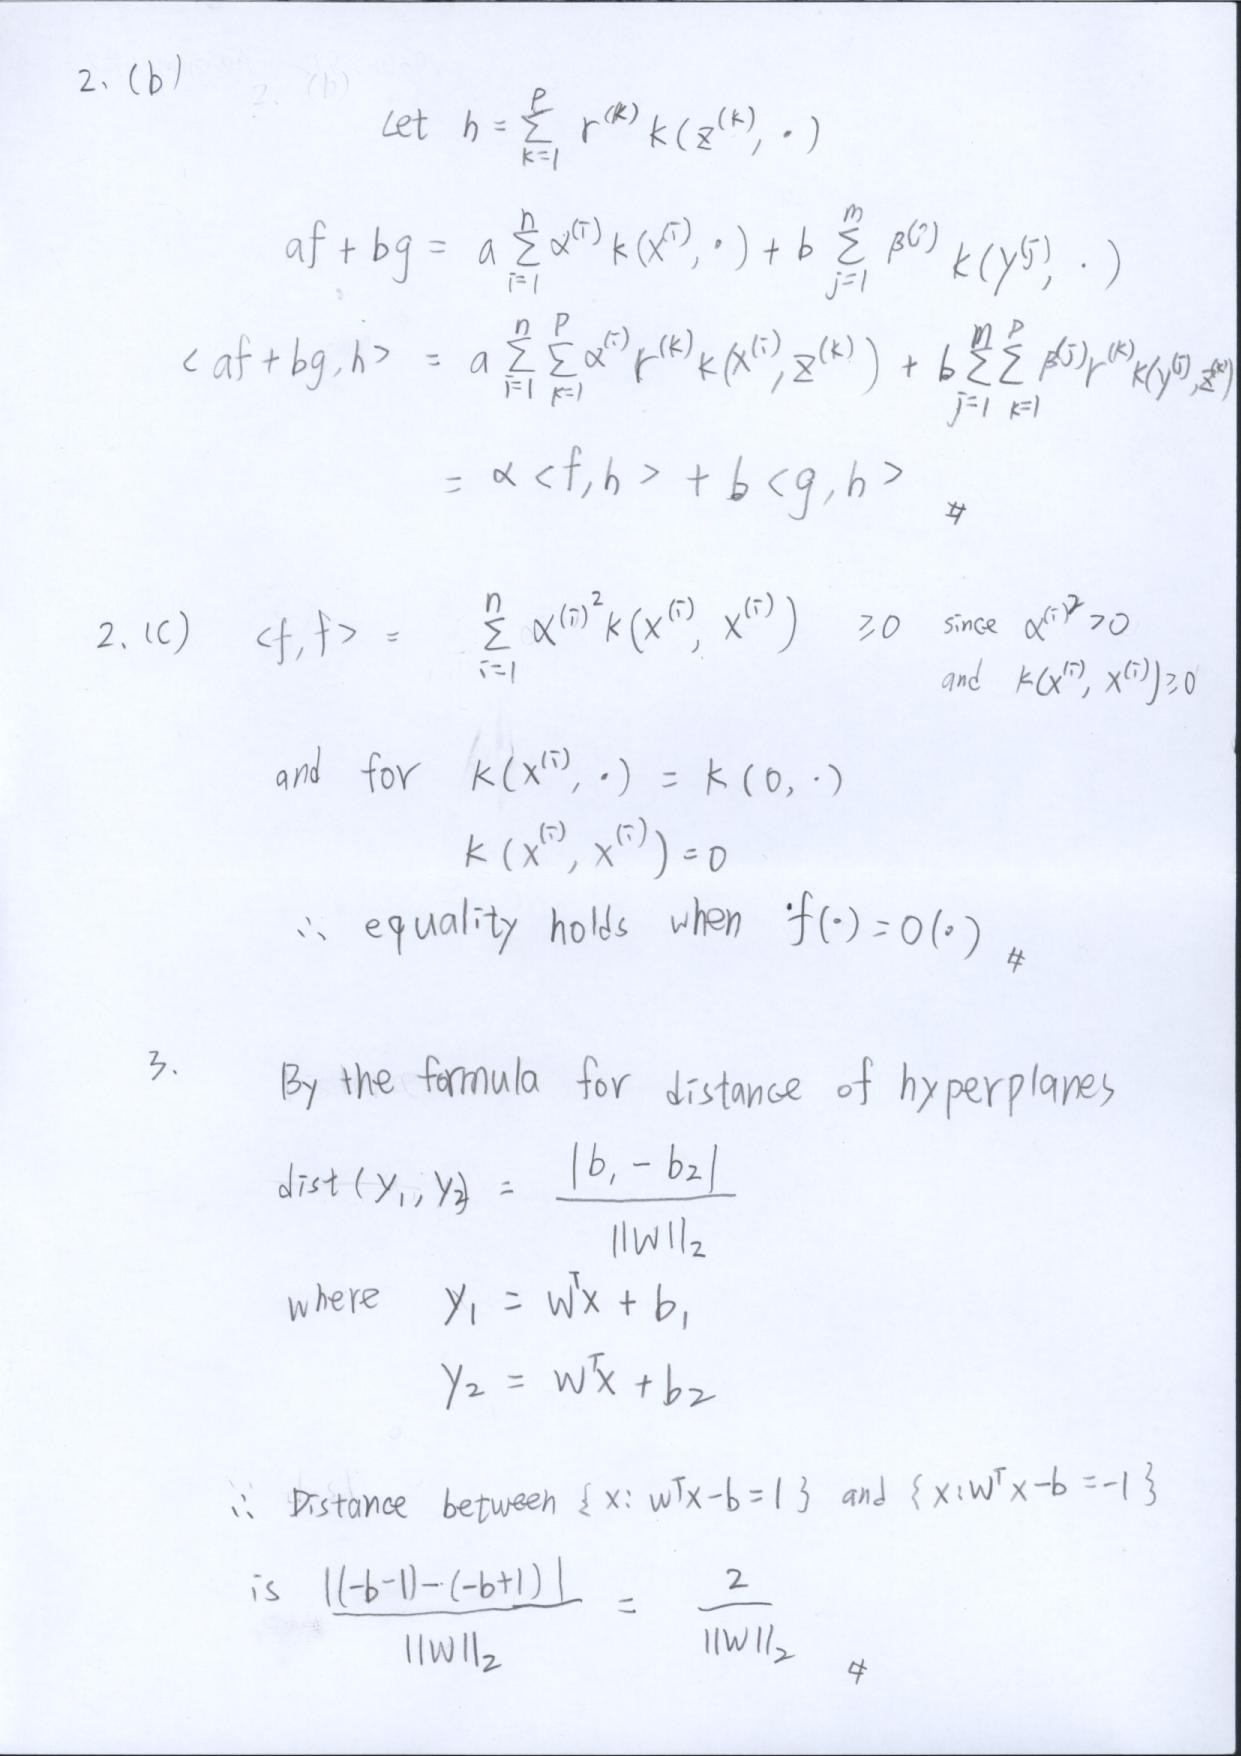 2. (b)
Let h = \sum_{k=1}^{p} r^{(k)} k(z^{(k)}, ·)
af + bg = a \sum_{i=1}^{n} α^{(i)} k(x^{(i)}, ·) + b \sum_{j=1}^{m} β^{(j)} k(y^{(j)}, ·)
<af + bg, h> = a \sum_{i=1}^{n} \sum_{k=1}^{p} α^{(i)} r^{(k)} k(x^{(i)}, z^{(k)}) + b \sum_{j=1}^{m} \sum_{k=1}^{p} β^{(j)} r^{(k)} k(y^{(j)}, z^{(k)})
= α <f, h> + b <g, h> #
2. (c) <f, f> = \sum_{i=1}^{n} α^{(i)^2} k(x^{(i)}, x^{(i)}) ≥0 since α^{(i)^2} >0
and k(x^{(i)}, x^{(i)}) ≥0
and for k(x^{(i)}, ·) = k(0, ·)
k(x^{(i)}, x^{(i)}) = 0
∴ equality holds when f(·) = 0(·) #
3. By the formula for distance of hyperplanes
dist(y_1, y_2) = \frac{|b_1 - b_2|}{||w||_2}
where y_1 = w^T x + b_1
y_2 = w^T x + b_2
∴ Distance between {x: w^T x - b = 1} and {x: w^T x - b = -1}
is \frac{|(-b-1)-(-b+1)|}{||w||_2} = \frac{2}{||w||_2} #